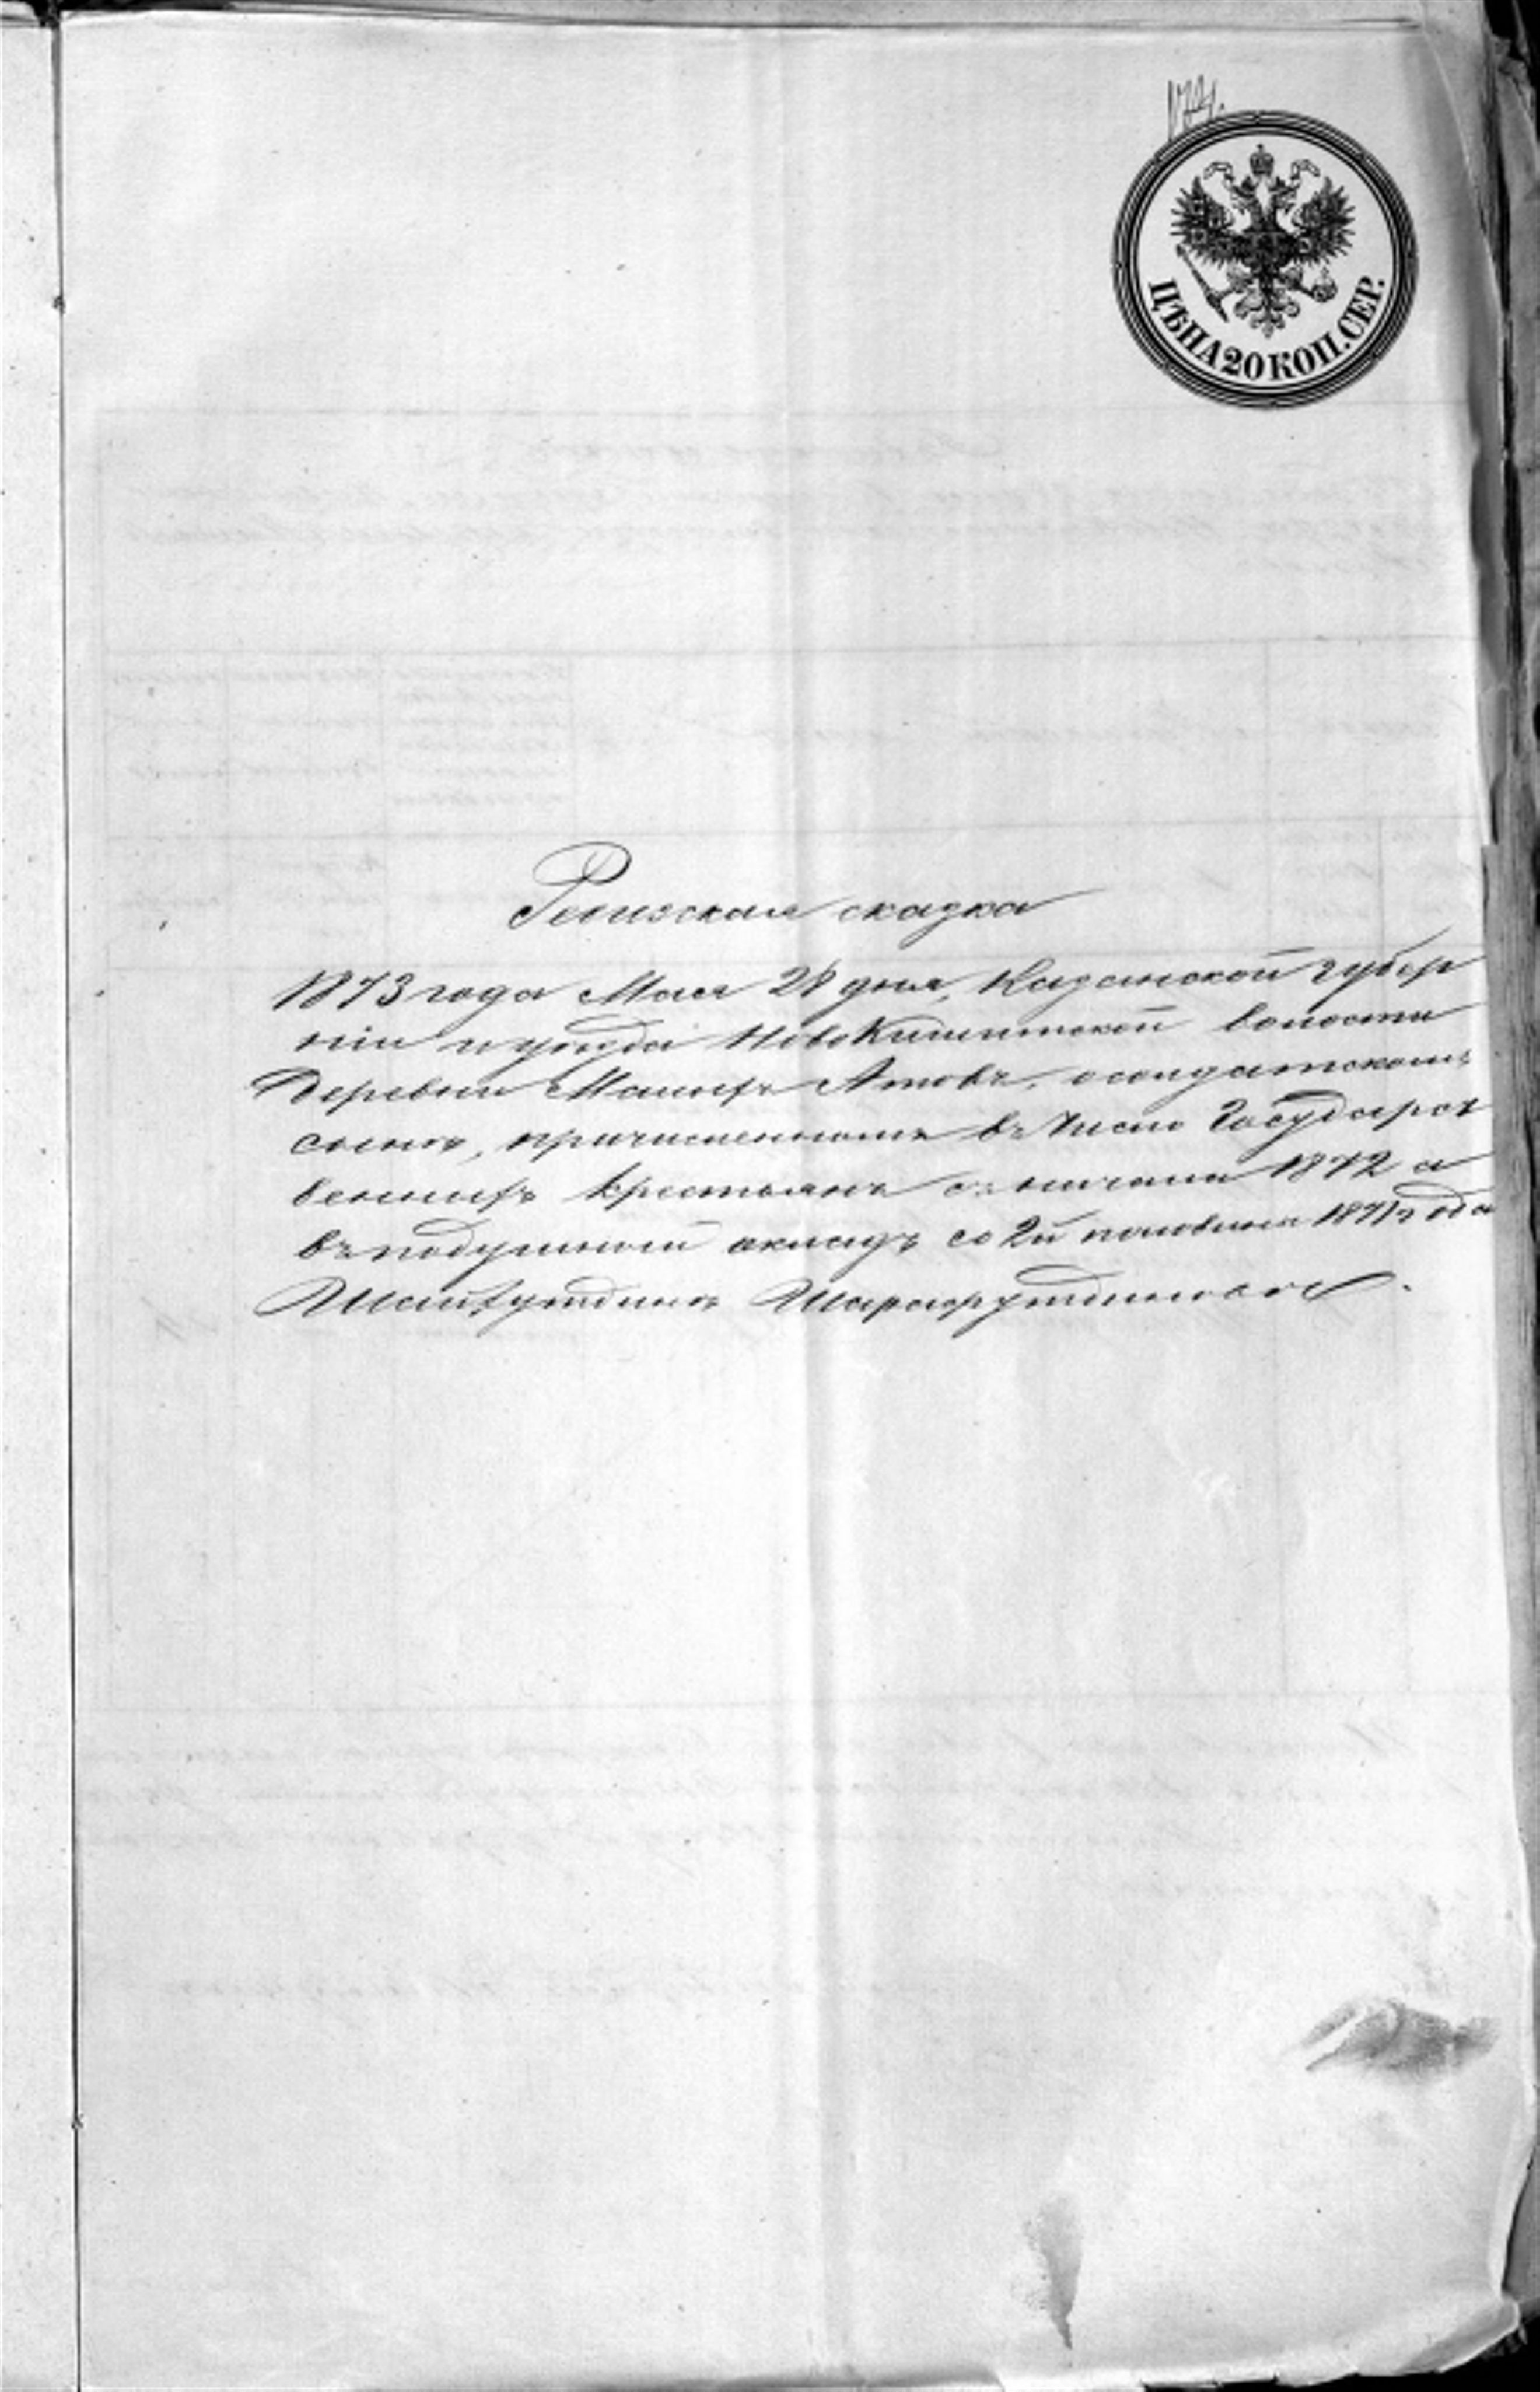 174.
ЦѢНА 20 КОП. СЕР.
Ревизская сказка
1873 года Мая 28 дня, Казанской губер
ніи и уѣзда Ново Кишитской волости
Деревни Малыхъ Атовъ, о солдатскомъ
сынѣ, причисленномъ въ число Государст
венныхъ крестьянъ съ начала 1872 а
въ подушный окладъ со 2й половины 1871 года
Шарафутдиновѣ.